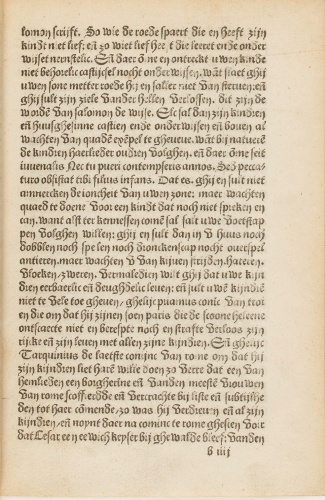 lomon scrift. So wie de roede spaert die en heeft zijn
kindt niet lief: eñ zo wiet lief heeft die leeret ende onder
wijset nernstelic. Eñ daer õme en ontreckt uwen kinde
niet behorelic castijsel nocht onderwijsen. wãt slaet ghij
uwen sone metter roede hij en salier niet van steruen: eñ
ghij sult zijn ziele vander hellen verlossen. dit zijn de
wordẽ van salomon de wijse. Elc sal dan zijn kindren
en huusghesinne castien ende onderwijsen eñ bouen al
wachten van quadẽ exẽpel te gheuene. wãt bij naturen
de kindren haerlieder oudren volghen. eñ daer õme seit
iuuenalis Nec tu pueri contempseris annos. Sed pecca-
turo obsistat tibi filius infans. Dat es. ghij en sult niet
anmercken de ioncheit van uwen zone: maer wachten
quaed te doene voor een kindt dat noch niet spreken en
can. want alst ter kennessen comẽ sal salt uwe voetstap
pen volghen willen: ghij en sult dan in u huus noch
dobblen noch spelen noch dronckescap nocht ouerspel
antieren. maer wachten u van kijuen strijden. hateren.
vloecken. zweren. vermaledien wilt ghij dat uwe kin
dren eerbaerlic eñ deughdelic leuen: eñ sult uwẽ kindrẽ
niet te vele toe gheuen. ghelijc priamus conic van troi
en die om dat hij zijnen soen paris die de scoone heleene
ontscaecte niet en berespte noch en strafte verloos zijn
rijke eñ zijn leuen met allen zijne kindren. Eñ ghelijc
Tarquinius de laetste conijnc van rome om dat hij
zijn kindren lief hare wille doen zo verre dat een van
hemlieden een borgherinne eñ eender meestẽ vrouwen
van rome scoffierdde eñ vercrachte bij liste eñ subtijlhe
den tot haer cõmende/zo was hij verdreuen eñ al zijn
kindren/eñ noynt daer na coninc te rome ghesien Voit
dat Cesar een eewich keyser bij ghewalde bleef: vanden
b iiij